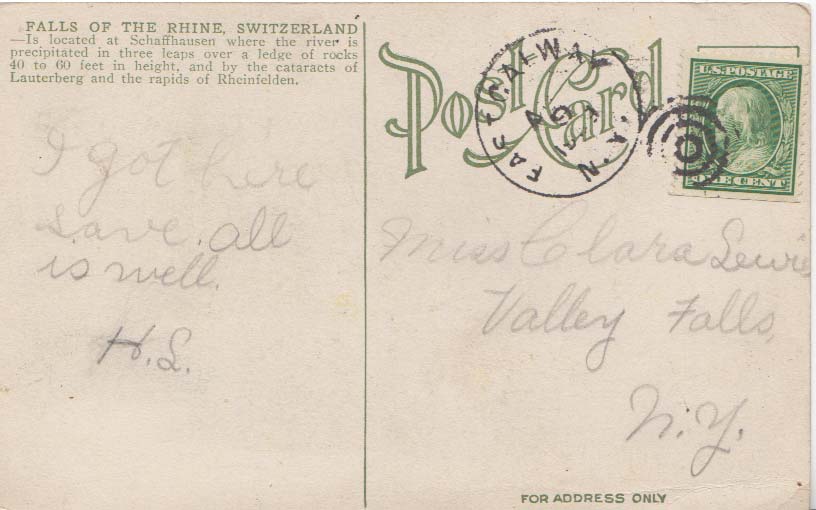 FALLS OF THE RHINE, SWITZERLAND
—Is located at Schaffhausen where the river is
precipitated in three leaps over a ledge of rocks
40 to 60 feet in height, and by the cataracts of
Lauterberg and the rapids of Rheinfelden.
I got here
save. all
is well.
H. L.
Post Card
N.Y.
U.S. POSTAGE
ONE CENT
Miss Clara Lewis
Valley Falls,
N.Y.
FOR ADDRESS ONLY